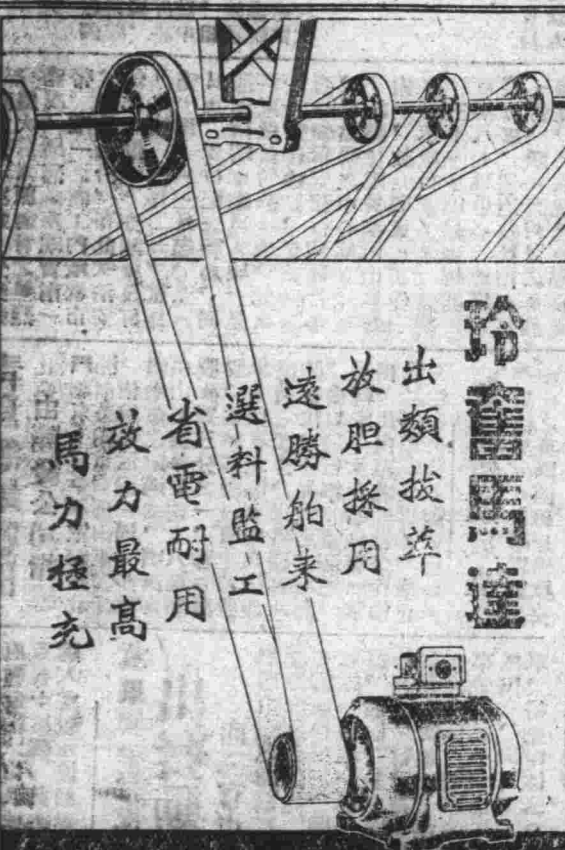 玲奮馬達
出類拔萃
放胆採用
遠勝舶来
選料監工
省電耐用
效力最高
馬力極充